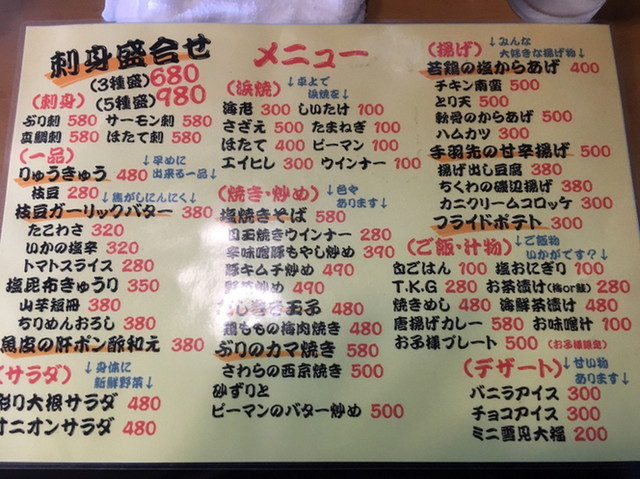 刺身盛合せ
(3種盛) 680
(5種盛) 980
(刺身)
ぶり刺 580 サーモン刺 580
真鯛刺 580 ほたて刺 580
(一品) ↓早めに
出来る一品↓
りゅうきゅう 480
枝豆 280 ↓焦がしにんにく↓
枝豆ガーリックバター 380
たこわさ 320
いかの塩辛 320
トマトスライス 280
塩昆布きゅうり 350
山芋短冊 380
ちりめんおろし 380
魚皮の肝ポン酢和え 380
(サラダ) ↓身体に
新鮮野菜↓
彩り大根サラダ 480
オニオンサラダ 480
メニュー
(浜焼) ↓卓上で
浜焼を↓
海老 300 しいたけ 100
さざえ 500 たまねぎ 100
ほたて 400 ピーマン 100
エイヒレ 300 ウインナー 100
(焼き・炒め) ↓色々
あります↓
塩焼きそば 580
目玉焼きウインナー 280
辛味噌豚もやし炒め 390
豚キムチ炒め 490
野菜炒め 490
だし巻き玉子 480
鶏ももの梅肉焼き 480
ぶりのカマ焼き 580
さわらの西京焼き 500
砂ずりと
ピーマンのバター炒め 500
(揚げ) ↓みんな
大好きな揚げ物↓
若鶏の塩からあげ 400
チキン南蛮 500
とり天 500
軟骨のからあげ 500
ハムカツ 300
手羽先の甘辛揚げ 500
揚げ出し豆腐 380
ちくわの磯辺揚げ 380
カニクリームコロッケ 300
フライドポテト 300
(ご飯・汁物) ↓ご飯物
いかがです?↓
白ごはん 100 塩おにぎり 100
T.K.G 280 お茶漬け(梅or鮭) 280
焼きめし 480 海鮮茶漬け 480
唐揚げカレー 580 お味噌汁 100
お子様プレート 500 (お子様限定)
(デザート) ↓甘い物
あります↓
バニラアイス 300
チョコアイス 300
ミニ雪見大福 200